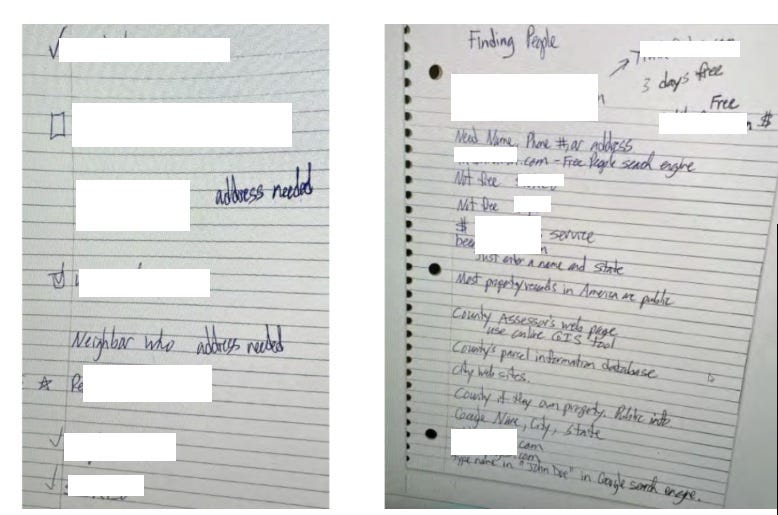 address needed
Neighbor who address needed
Finding People
3 days free
Free
$
Need Name, Phone #, or address
.com - Free People search engine
Not free
Not free
$ service
Just enter a name and state
Most property records in America are public
County Assessor's web page
use online GIS tool
County's parcel information database
city web sites.
County if they own property. Public info
Google Name, City, State
.com
.com
Type name in "John Doe" in Google search engine.